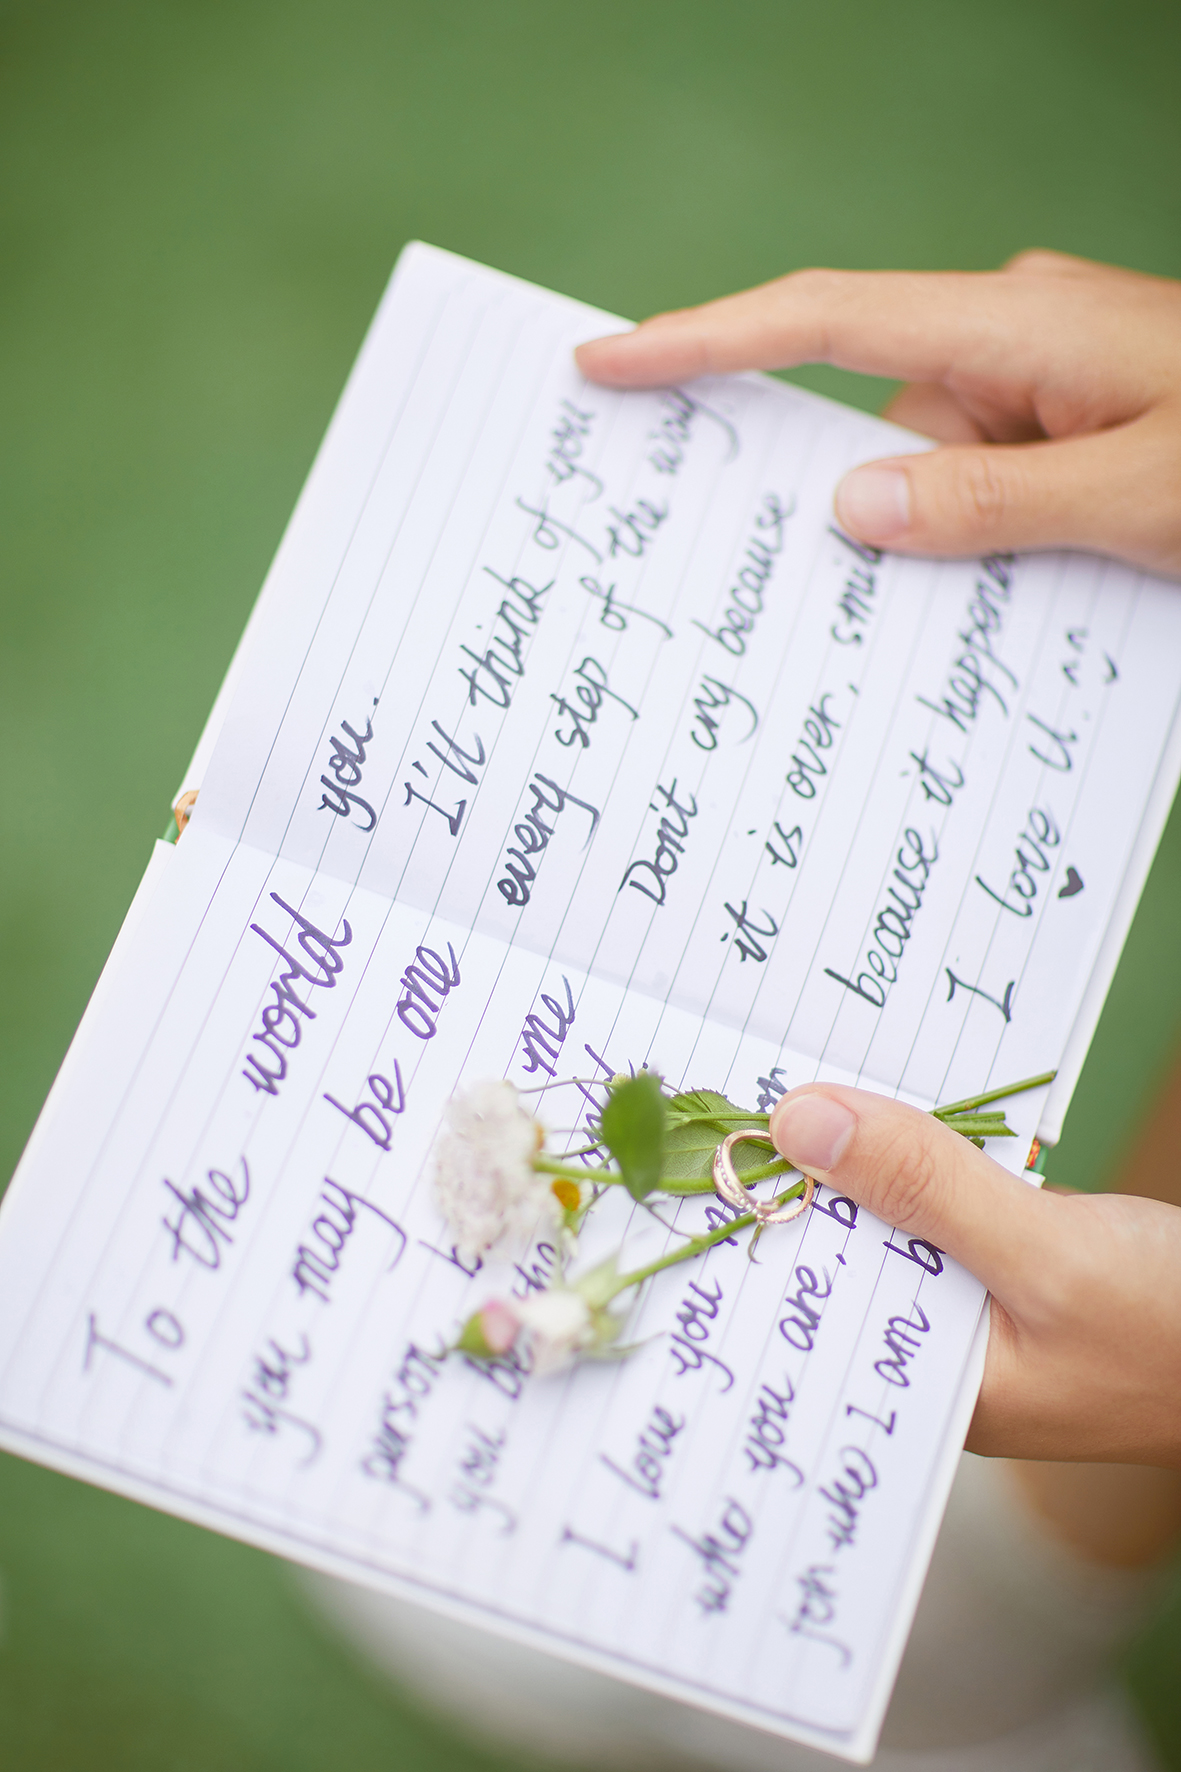 To the world
you may be one
person me
you
I love you
who you are, b
for who I am
you.
I'll think of you
every step of the way.
Don't cry because
it is over, smil
because it happene
I love U.